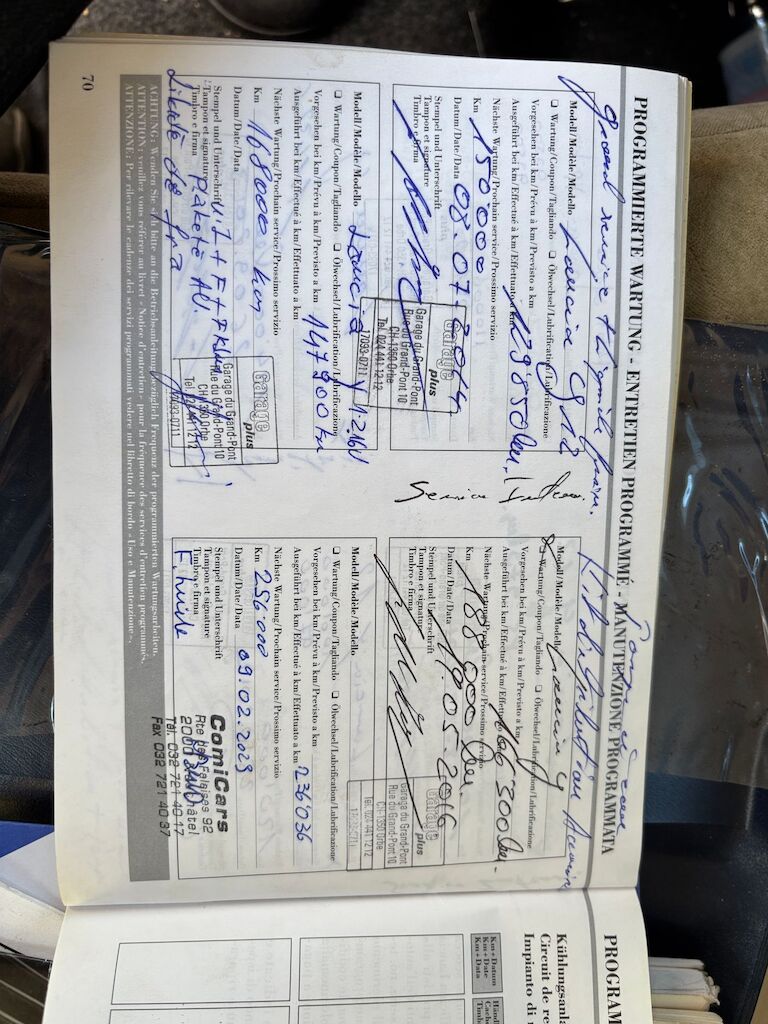 PROGRAMMIERTE WARTUNG - ENTRETIEN PROGRAMMÉ - MANUTENZIONE PROGRAMMATA
Grand service +
Modell/Modèle/Modello Lancia
❏ Wartung/Coupon/Tagliando ❏ Ölwechsel/Lubrification/Lubrificazione
Vorgesehen bei km/Prévu à km/Previsto a km
Ausgeführt bei km/Effectué à km/Effettuato a km 129'850 km
Nächste Wartung/Prochain service/Prossimo servizio
Km 150'000
Datum/Date/Data 08.07.2014
Stempel und Unterschrift
Tampon et signature
Timbro e firma
Garage plus
Garage du Grand-Pont
Rue du Grand-Pont 10
CH-1350 Orbe
Tel. 024 441 12 12
17093-0711
Modell/Modèle/Modello Lancia Y 1.2 16V
❏ Wartung/Coupon/Tagliando ❏ Ölwechsel/Lubrification/Lubrificazione
Vorgesehen bei km/Prévu à km/Previsto a km
Ausgeführt bei km/Effectué à km/Effettuato a km 147'900 km
Nächste Wartung/Prochain service/Prossimo servizio
Km 168000 km
Datum/Date/Data
Stempel und Unterschrift
Tampon et signature
Timbro e firma
Plaketé AV.
Garage plus
Garage du Grand-Pont
Rue du Grand-Pont 10
CH-1350 Orbe
Tel. 024 441 12 12
17093-0711
Service
Kit distribution
Modell/Modèle/Modello Lancia Y
❏ Wartung/Coupon/Tagliando ❏ Ölwechsel/Lubrification/Lubrificazione
Vorgesehen bei km/Prévu à km/Previsto a km
Ausgeführt bei km/Effectué à km/Effettuato a km 166'300 km
Nächste Wartung/Prochain service/Prossimo servizio
Km 188'000 km
Datum/Date/Data 05.2016
Stempel und Unterschrift
Tampon et signature
Timbro e firma
Garage plus
Garage du Grand-Pont
Rue du Grand-Pont 10
CH-1350 Orbe
Tel. 024 441 12 12
Modell/Modèle/Modello
❏ Wartung/Coupon/Tagliando ❏ Ölwechsel/Lubrification/Lubrificazione
Vorgesehen bei km/Prévu à km/Previsto a km
Ausgeführt bei km/Effectué à km/Effettuato a km 236'036
Nächste Wartung/Prochain service/Prossimo servizio
Km 256'000
Datum/Date/Data 09.02.2023
Stempel und Unterschrift
Tampon et signature
Timbro e firma
F. huile
ComiCars
Rte des Falaises 92
2000 Neuchâtel
Tél. 032 721 40 17
Fax 032 721 40 37
ACHTUNG: Wenden Sie sich bitte an die Betriebsanleitung bezüglich Frequenz der programmierten Wartungsarbeiten.
ATTENTION: veuillez vous référer au livret «Notice d'entretien» pour la fréquence des services d'entretien programmés.
ATTENZIONE: Per rilevare le cadenze dei servizi programmati vedere nel libretto di bordo «Uso e Manutenzione».
70
PROGRAM
Kühlungsanla
Circuit de re
Impianto di r
Km+Datum
Km+Date
Km+Data
Händl
Cache
Timb